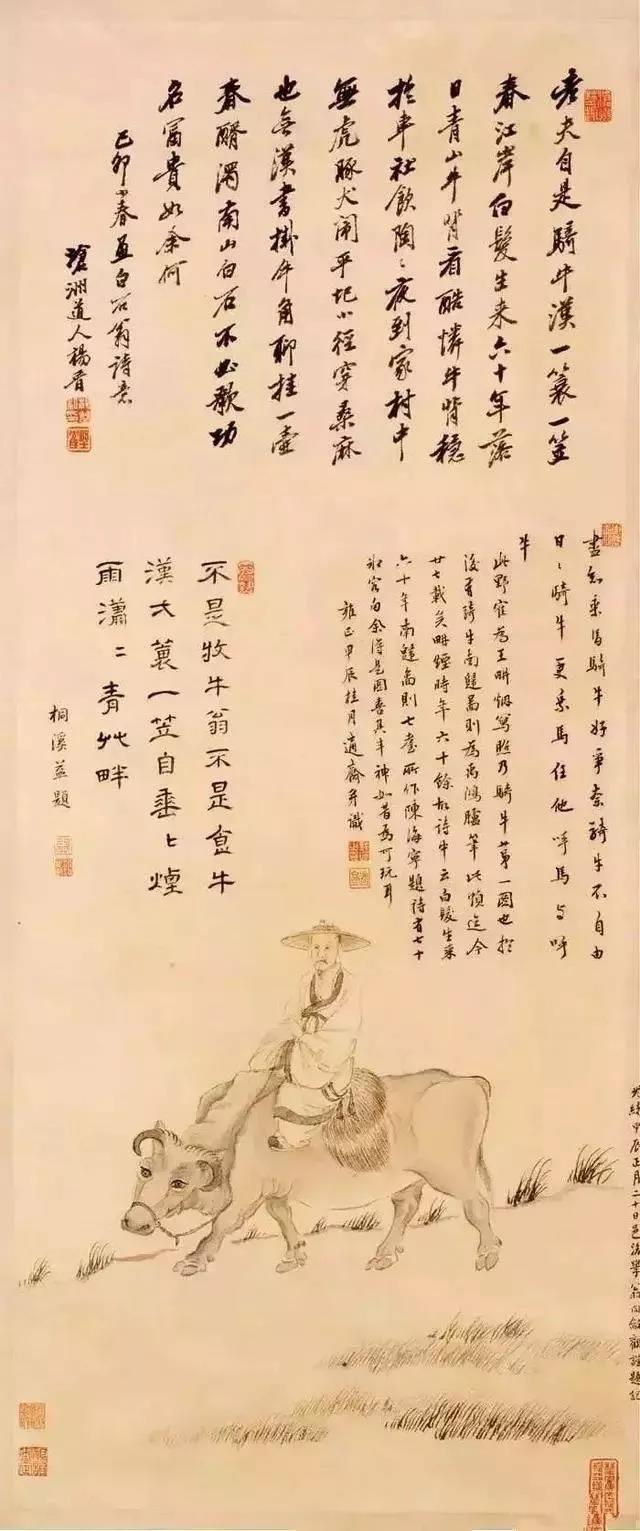 老夫自是騎牛漢一蓑一笠
春江岸白髮生來六十年落
日青山牛背看酷憐牛背穩
於車社飲陶〻夜到家村中
無虎豚犬鬧平圯小徑穿桑麻
也無漢書掛牛角聊挂一壺
春醑濁南山白石不必歌功
名富貴如余何
己卯小春画白石翁詩意
瑲洲道人楊晉
盡知乘馬騎牛好爭奈騎牛不自由
日〻騎牛更乘馬任他呼馬與呼
牛
此野隺為王耕烟寫照乃騎牛第一圖也於
後有騎牛南䪥圖則為禹鴻臚筆此幀迄今
廿七載矣耕煙時年六十餘故詩中云白髮生來
六十年南䪥圖則七耋所作陳海寧題詩有七十
客向余得是圖喜其丰神如昔為可玩耳
雍正甲辰桂月適齋并識
不是牧牛翁不是食牛
漢大蓑一笠自垂〻煙
雨瀟〻青艸畔
桐溪益題
光緒甲辰正月二十日邑後學翁同龢觀謹題記